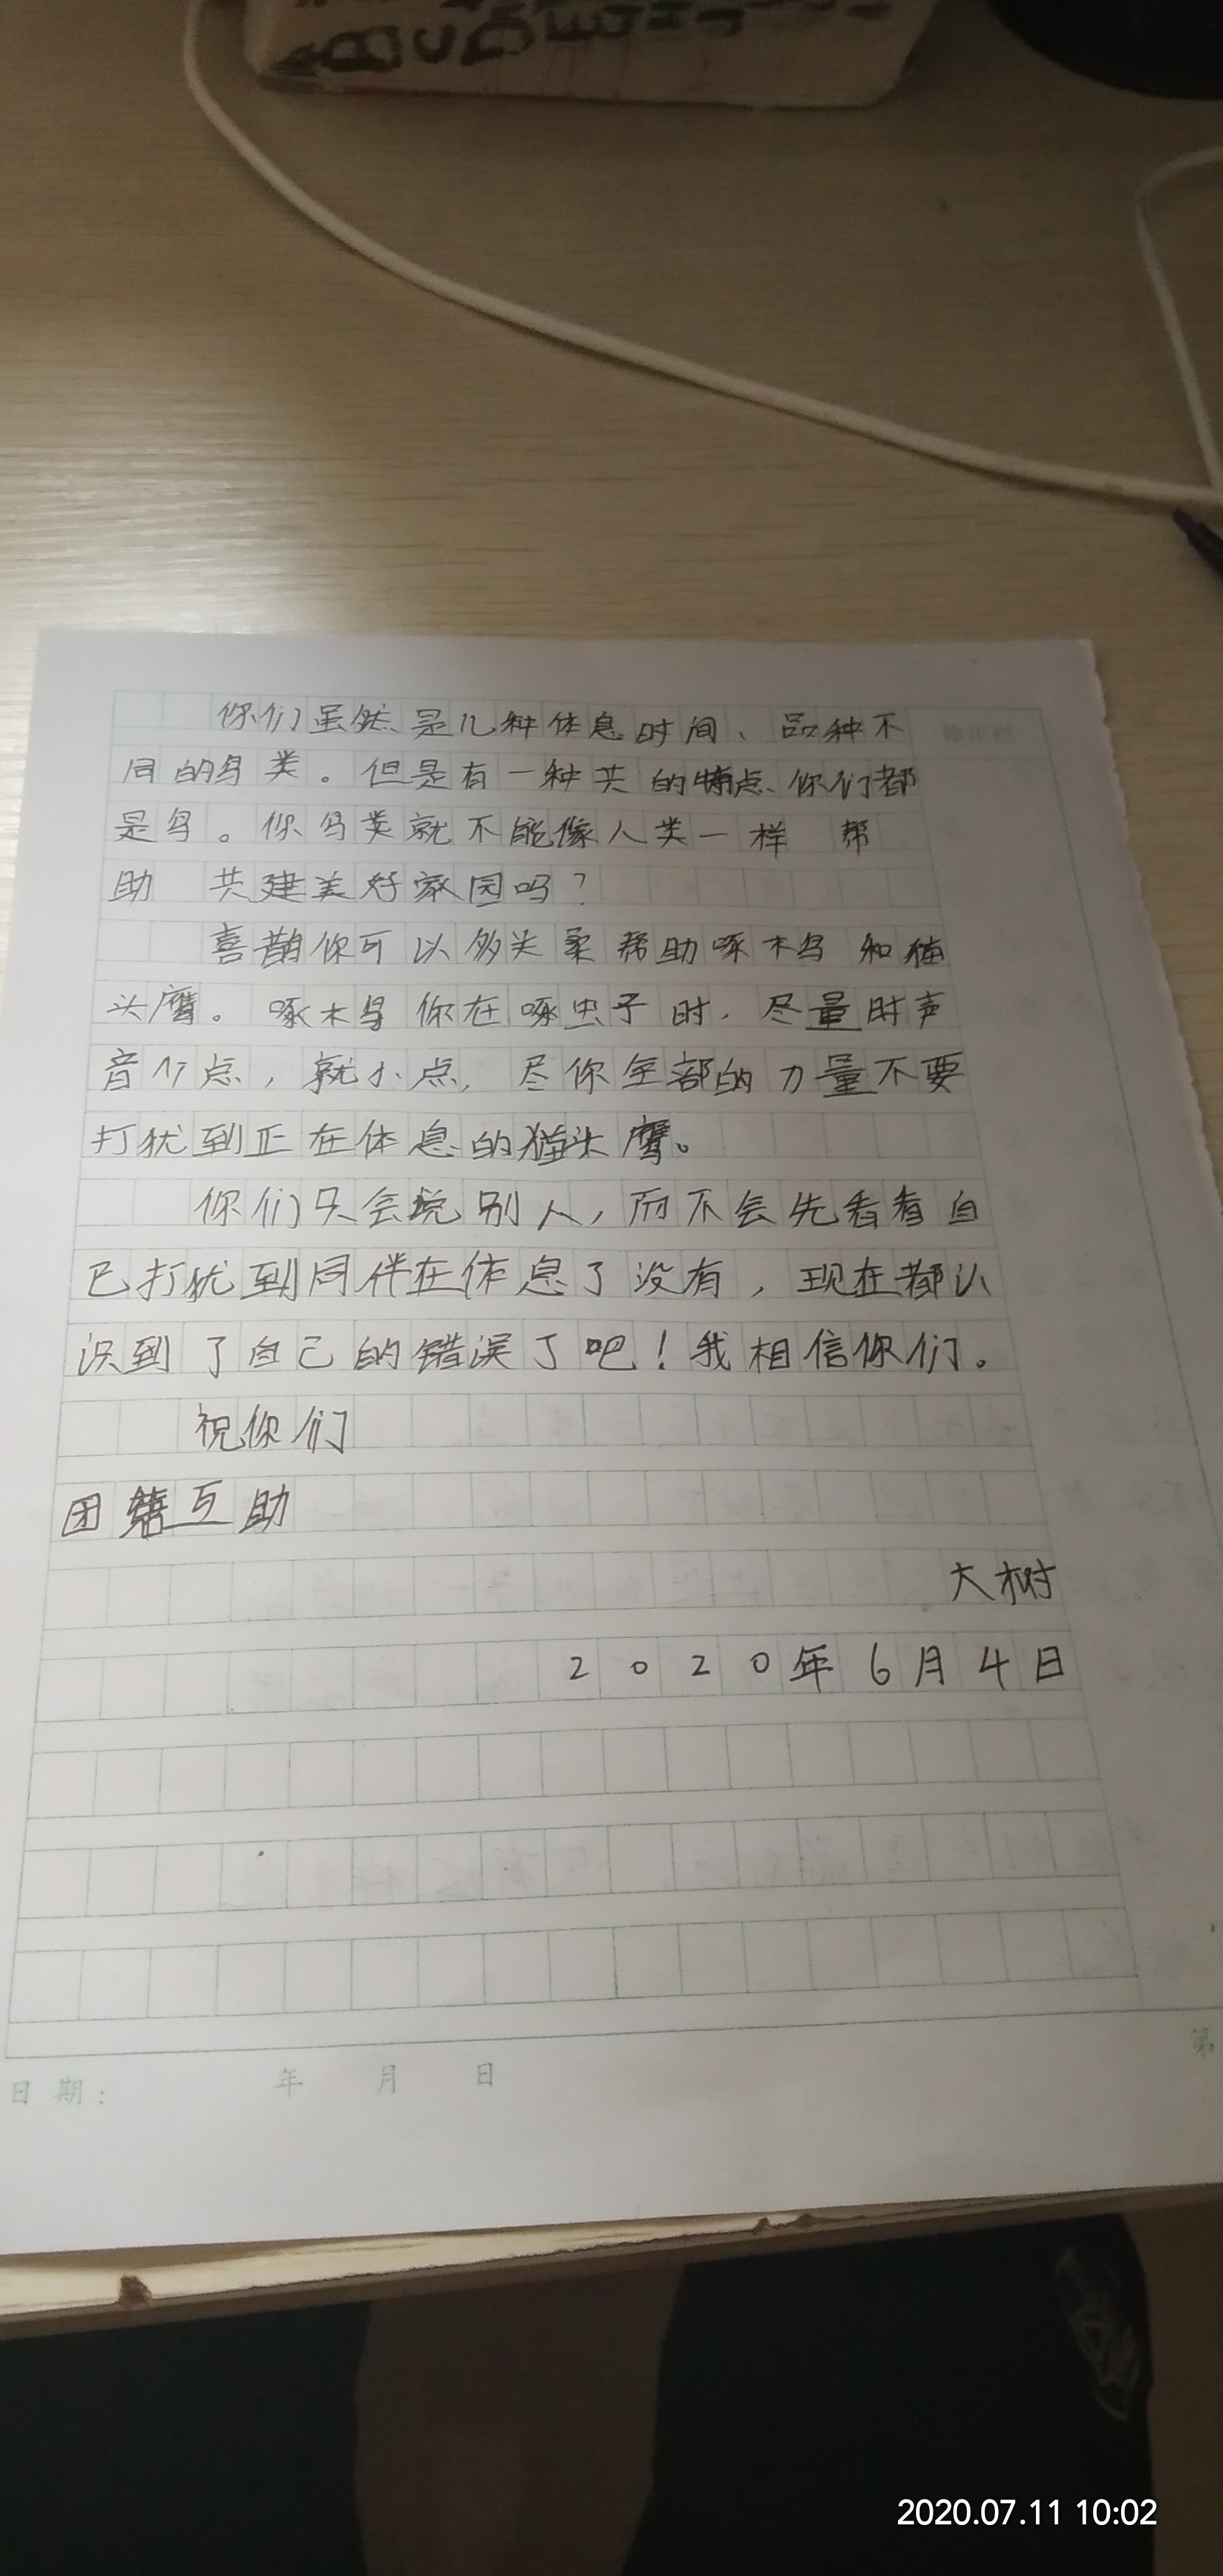 BCDEFGHIJ
你们虽然是几种体息时间、品种不
同的鸟类。但是有一种共 的特点、你们都
是鸟。你鸟类就不能像人类一样 帮
助 共建美好家园吗?
喜鹊你可以多关 帮助啄木鸟 和猫
头鹰。啄木鸟你在啄虫子时,尽量时声
音小点,就小点,尽你全部的力量不要
打扰到正在体息的猫头鹰。
你们只会说别人,而不会先看看自
已打扰到同伴在体息了没有,现在都认
识到了自己的错误了吧!我相信你们。
祝你们
团结互助
大树
2020年6月4日
日期: 年 月 日
第
2020.07.11 10:02